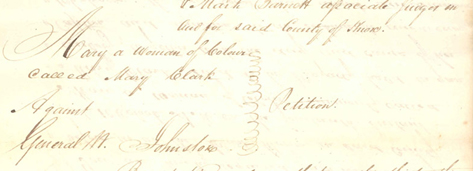 & Mark Barnett associate Judges in
and for said County of Knox.
Mary a Woman of Colour
Called Mary Clark
Against Petition.
General W. Johnston.